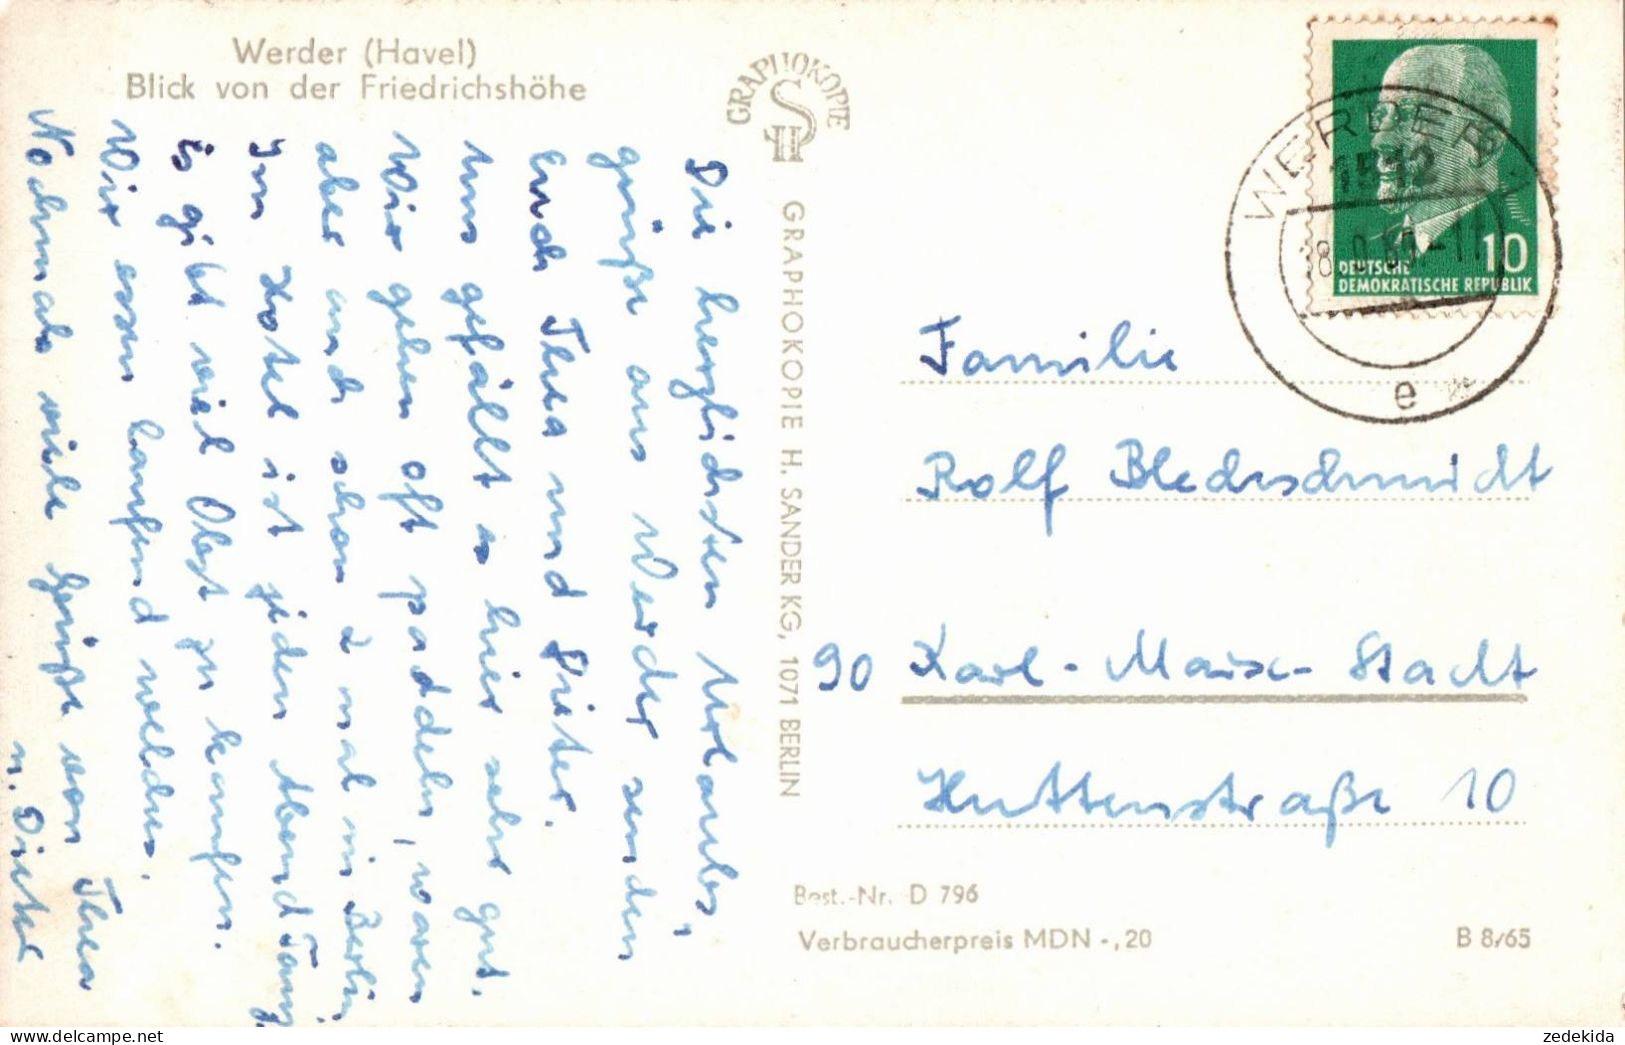 Werder (Havel)
Blick von der Friedrichshöhe
GRAPHOKOPIE
SH
GRAPHOKOPIE H. SANDER KG, 1071 BERLIN
Die herzlichsten Urlaubs,
grüße aus Werder senden
Euch Thea und Dieter.
Uns gefällt es hier sehr gut.
Wir gehen oft paddeln, waren
aber auch schon 2 mal in Berlin.
Im Hotel ist jeden Abend Tanz,
Es gibt viel Obst zu kaufen.
Wir essen laufend welches.
Nochmals viele Grüße von Thea
u. Dieter
WERDER
1512
e
10
DEUTSCHE
DEMOKRATISCHE REPUBLIK
Familie
Rolf Blechschmidt
90 Karl-Marx-Stadt
Huttenstraße 10
Best.-Nr. D 796
Verbraucherpreis MDN -,20
B 8/65
zedekida